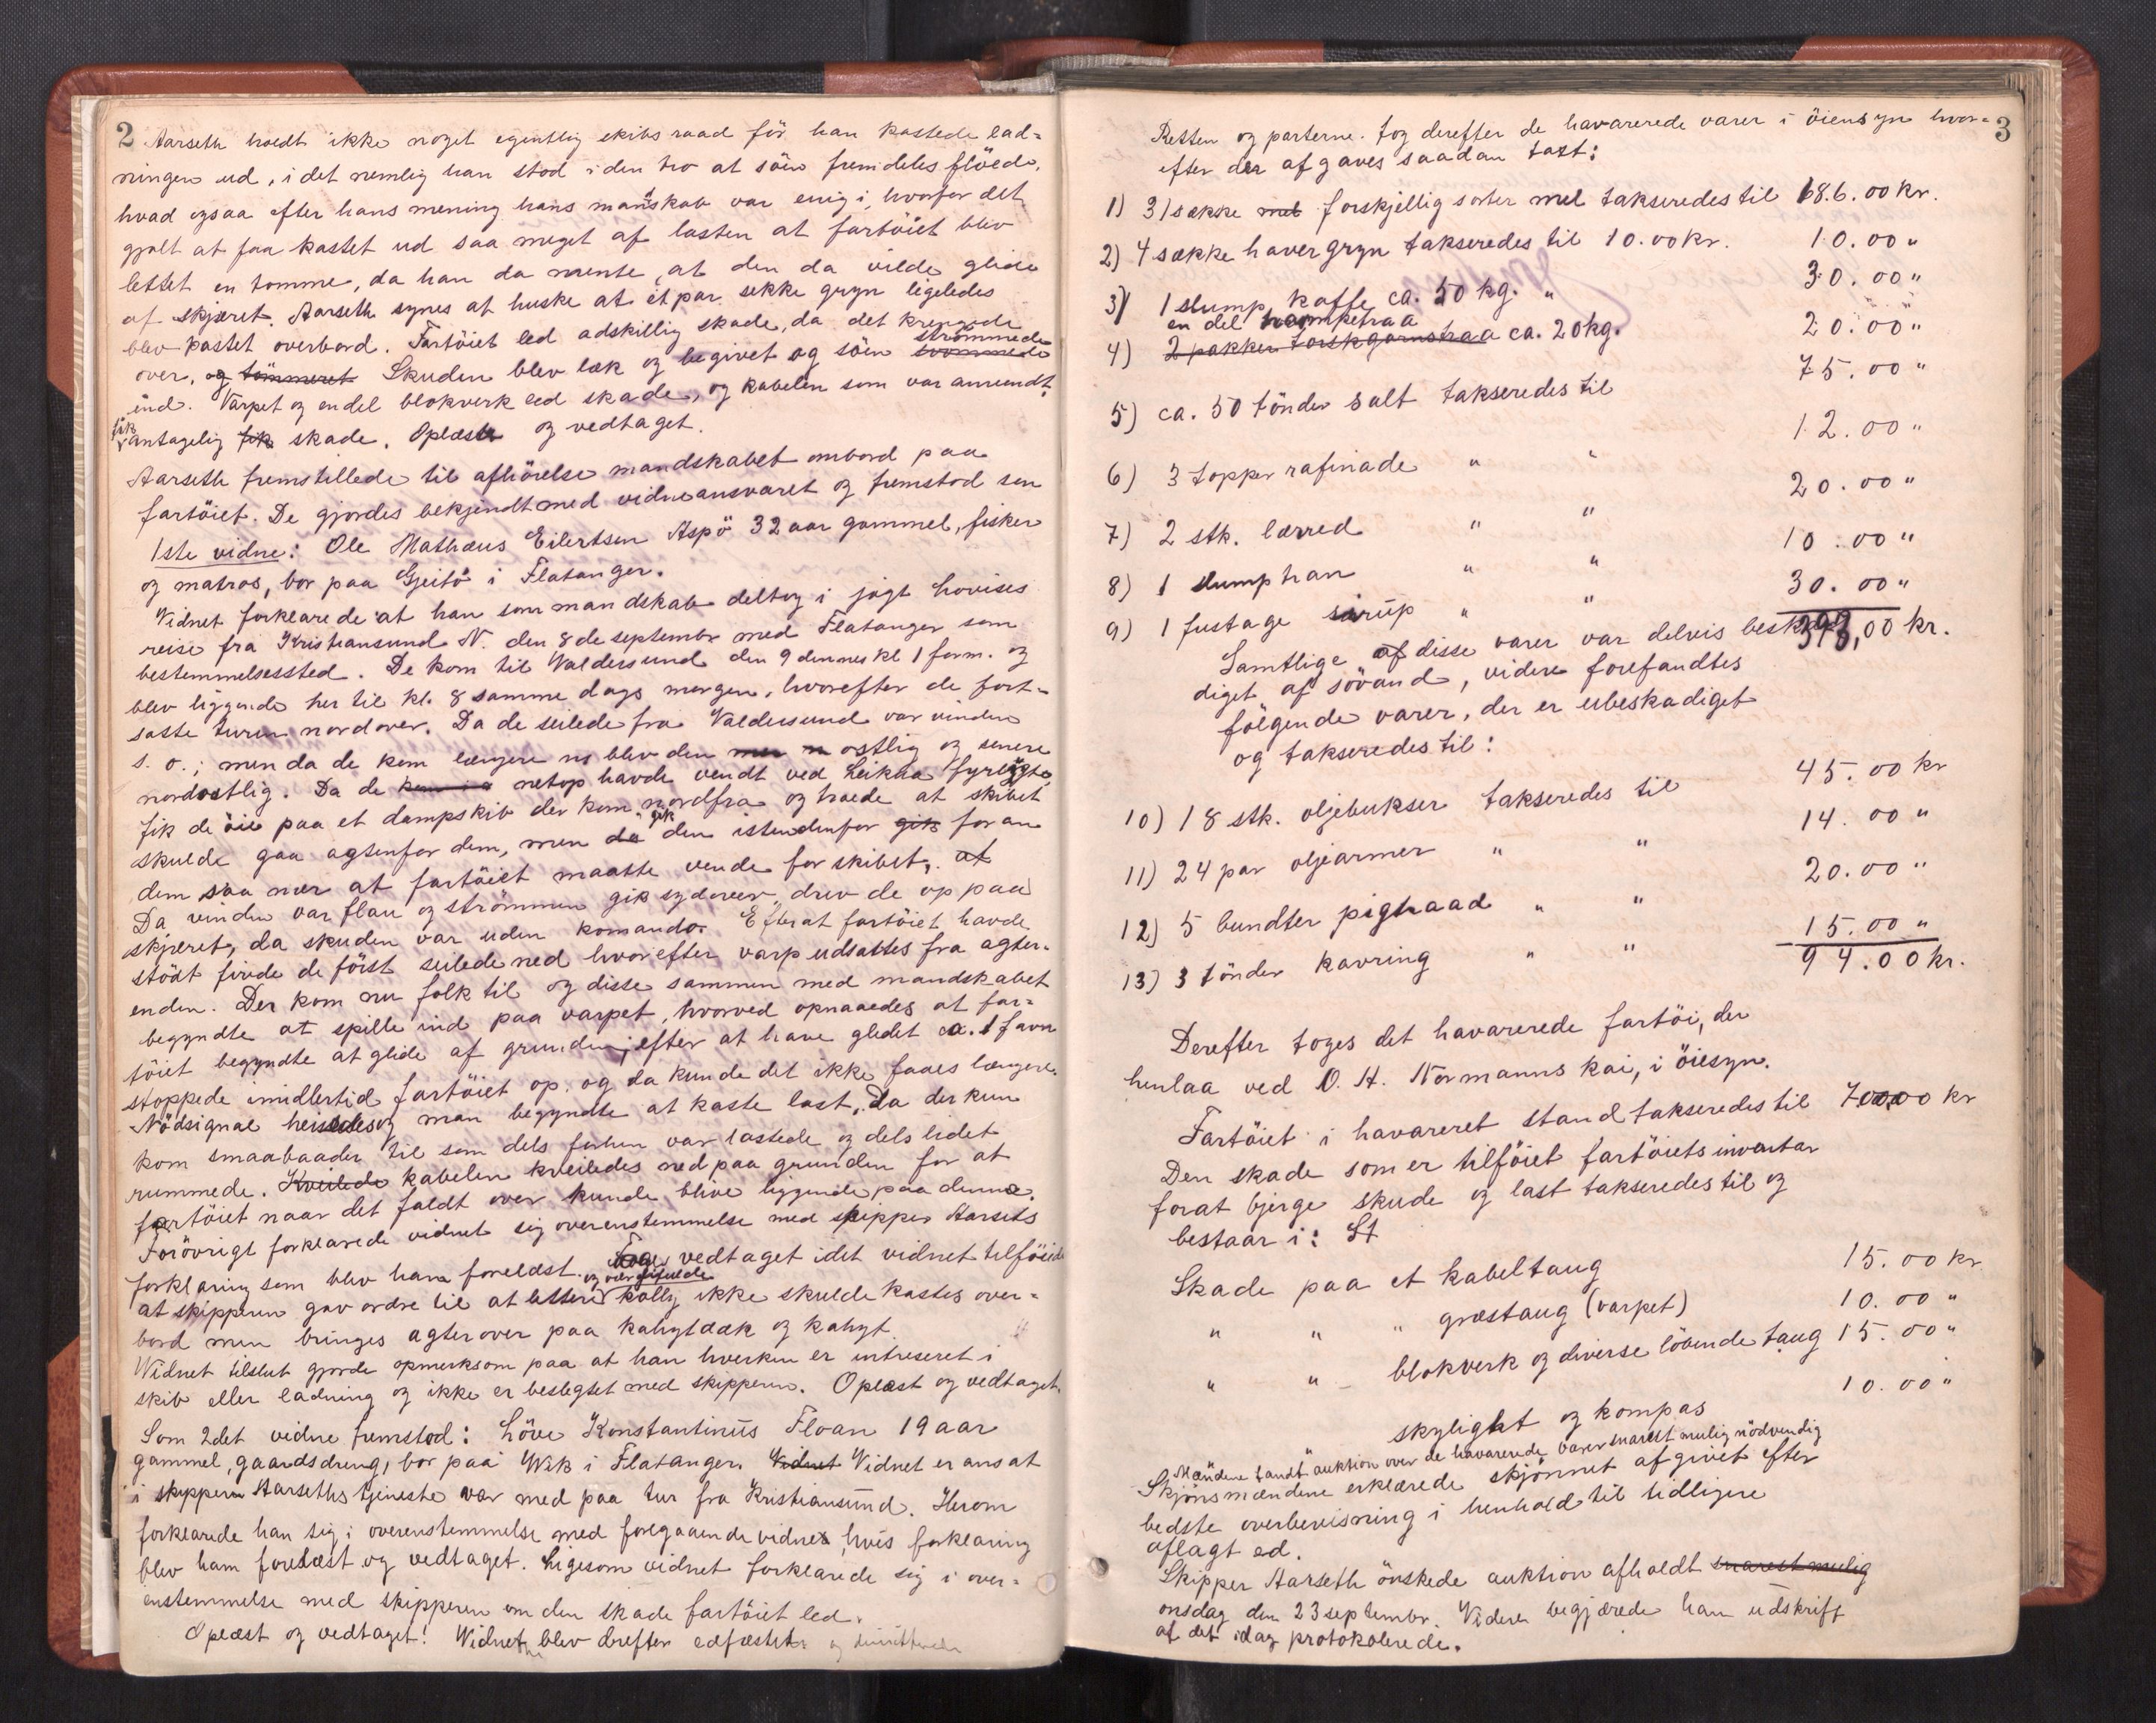 2
Aarseth hvedt ikke noget egentlig skibsraad för han kastede lad=
ningen ud, i det nemlig han stod i den tro at söen fremdeles flöede,
hvad ogsaa efter hans mening hans manskab var enig i, hvorfor det
gjalt at faa kastet ud saa meget af lasten at fartöiet blev
lettet en tomme, da han da mente, at den da vilde glide
af skjæret. Aarseth synes at huske at et par sekke gryn ligeledes
blev kastet overbord. Fartöiet led adskillig skade, da det krengede
over, og tömmeret Skuden blev læk og begivet og söen svömmede strömmede
ind. Varpet og endel blokverk led skade, og kabelen som var anvendt,
fik antagelig fik skade. Oplæst og vedtaget.
Aarseth fremstillede til afhörelse mandskabet ombord paa
fartöiet. De gjordes bekjendt med vidneansvaret og fremstod som
1ste vidne: Ole Mathæus Eilertsen Aspö 32 aar gammel, fisker
og matros, bor paa Gjeitö i Flatanger.
Vidnet forklarede at han som mandskab deltog i jagt Lovises
reise fra Kristiansund N. den 8de septembr med Flatanger som
bestemmelsessted. De kom til Valdersund den 9 dennes kl 1 form. og
blev liggende her til kl. 8 samme dags morgen, hvorefter de fort=
satte turen nordover. Da de seilede fra Valdersund var vinden
s. o.; men da de kom længere no blev den mer n ostlig og senere
nordostlig. Da de kom i a netop havde vendt ved Leikna fyrlygte
fik de öie paa et dampskib der kom nordfra og troede at skibet
skulde gaa agtenfor dem, men da gik den istendenfor gik foran
dem saa nær at fartöiet maatte vende for skibet, at
Da vinden var flau og strömmen gik sydover, drev de op paa
skjæret, da skuden var uden komando. Efterat fartöiet havde
stödt firede de först seilede ned hvorefter varp udsattes fra agter=
enden. Der kom nu folk til og disse sammen med mandskabet
begyndte at spille ind paa varpet, hvorved opnaaedes at far=
töiet begyndte at glide af grunden, efter at have gledet ca. 1 favn
stoppede imidlertid fartöiet op. og da kunde det ikke faaes længere.
Nödsignal heisedes og man begyndte at kaste last, da der kun
kom smaabaader til som dels forhen var lastede og dels lidet
rummede. Kveilede kabelen kveiledes ned paa grunden for at
fartöiet naar det faldt over kunde blive liggende paa denne.
Forövrigt forklarede vidnet sig overenstemmelse med skipper Aarseths
forklaring som blev ham forelæst. vedtaget idet vidnet tilföiede
at skipperen gav ordre til at lettere og værdifulde kolly ikke skulde kastes over=
bord men bringes agterover paa kahytdæk og kahyt.
Vidnet tilslut gjorde opmerksom paa at han hverken er intreseret i
skib eller ladning og ikke er beslegtet med skipperen. Oplæst og vedtaget.
Som 2det vidne fremstod: Löve Konstantinus Floan 19 aar
gammel, gaardsdreng, bor paa Wik i Flatanger. Vidnet Vidnet er ansat
i skipperen Aarseths tjeneste var med paa tur fra Kristiansund. Herom
forklarede han sig i overenstemmelse med foregaaende vidne, hvis forklaring
blev ham forelæst og vedtaget. Ligesom vidnet forklarede sig i over=
enstemmelse med skipperen om den skade fartöiet led.
Oplæst og vedtaget! Vidnerne blev drefter edfæstet og dimitterede
3
Retten og parterne. tog derefter de havarerede varer i öiensyn hvor=
efter der afgaves saadan taxt:
1) 31 sække mel forskjellig sorter mel takseredes til 186.00 kr.
2) 4 sække havergryn takseredes til 10.00 kr. 10.00 "
3) 1 slump kaffe ca. 50 kg. " 30.00 "
4) 2 pakker torskgarnstraa en del hampetraa ca. 20 kg. 20.00 "
5) ca. 50 tönder salt takseredes til 75.00 "
6) 3 topper rafinade " " 12.00 "
7) 2 stk. lærred " " 20.00 "
8) 1 slump tran " " 10.00 "
9) 1 fustage sirup " " 30.00 "
393,00 kr.
Samtlige af disse varer var delvis beska=
diget af sövand, videre forefandtes
fölgende varer, der er ubeskadiget
og takseredes til:
10) 18 stk. oljebukser takseredes til 45.00 kr
11) 24 par oljearmer " " 14.00 "
12) 5 bundter pigtraad " " 20.00 "
13) 3 tönder kavring " " 15.00 "
94.00 kr.
Derefter toges det havarerede fartöi, der
henlaa ved O. H. Normanns kai, i öiesyn.
Fartöiet i havareret stand takseredes til 700,00 kr
Den skade som er tilföiet fartöiets inventar
forat bjerge skude og last takseredes til og
bestaar i: St
Skade paa et kabeltaug 15.00 kr.
" " " græstaug (varpet) 10.00 "
" " – blokverk og diverse löbende taug 15.00 "
skylight og kompas 10.00 "
Mændene fandt auktion over de havarerede varer snarest mulig nödvendig
Skjönsmændene erklærede skjönnet afgivet efter
bedste overbevisning i henhold til tidligere
aflagt ed.
Skipper Aarseth önskede auktion afholdt snarest mulig
onsdag den 23 septembr. Videre begjærede han udskrift
af det idag protokolerede.